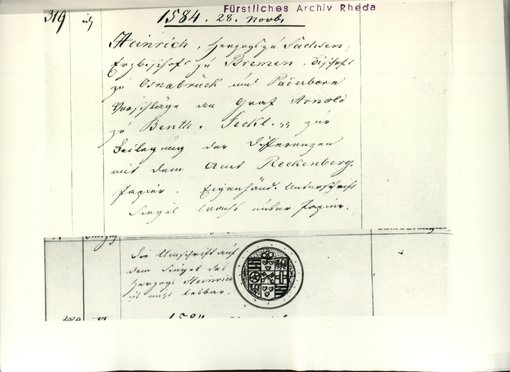 Fürstliches Archiv Rheda
319 1584. 28. Novb.
Heinrich, Herzogs zu Sachsen,
Erzbischofs zu Bremen, Bischofs
zu Osnabrück und Paderborn
Vorschläge an Graf Arnold
zu Benth. Teckl. zur
Beilegung der Differenzen
mit dem Amt Reckenberg.
Papier. Eigenhänd. Unterschrift
Siegel unter Papier.
Die Umschrift auf
dem Siegel des
Herzogs Heinrich
ist nicht lesbar.
1584